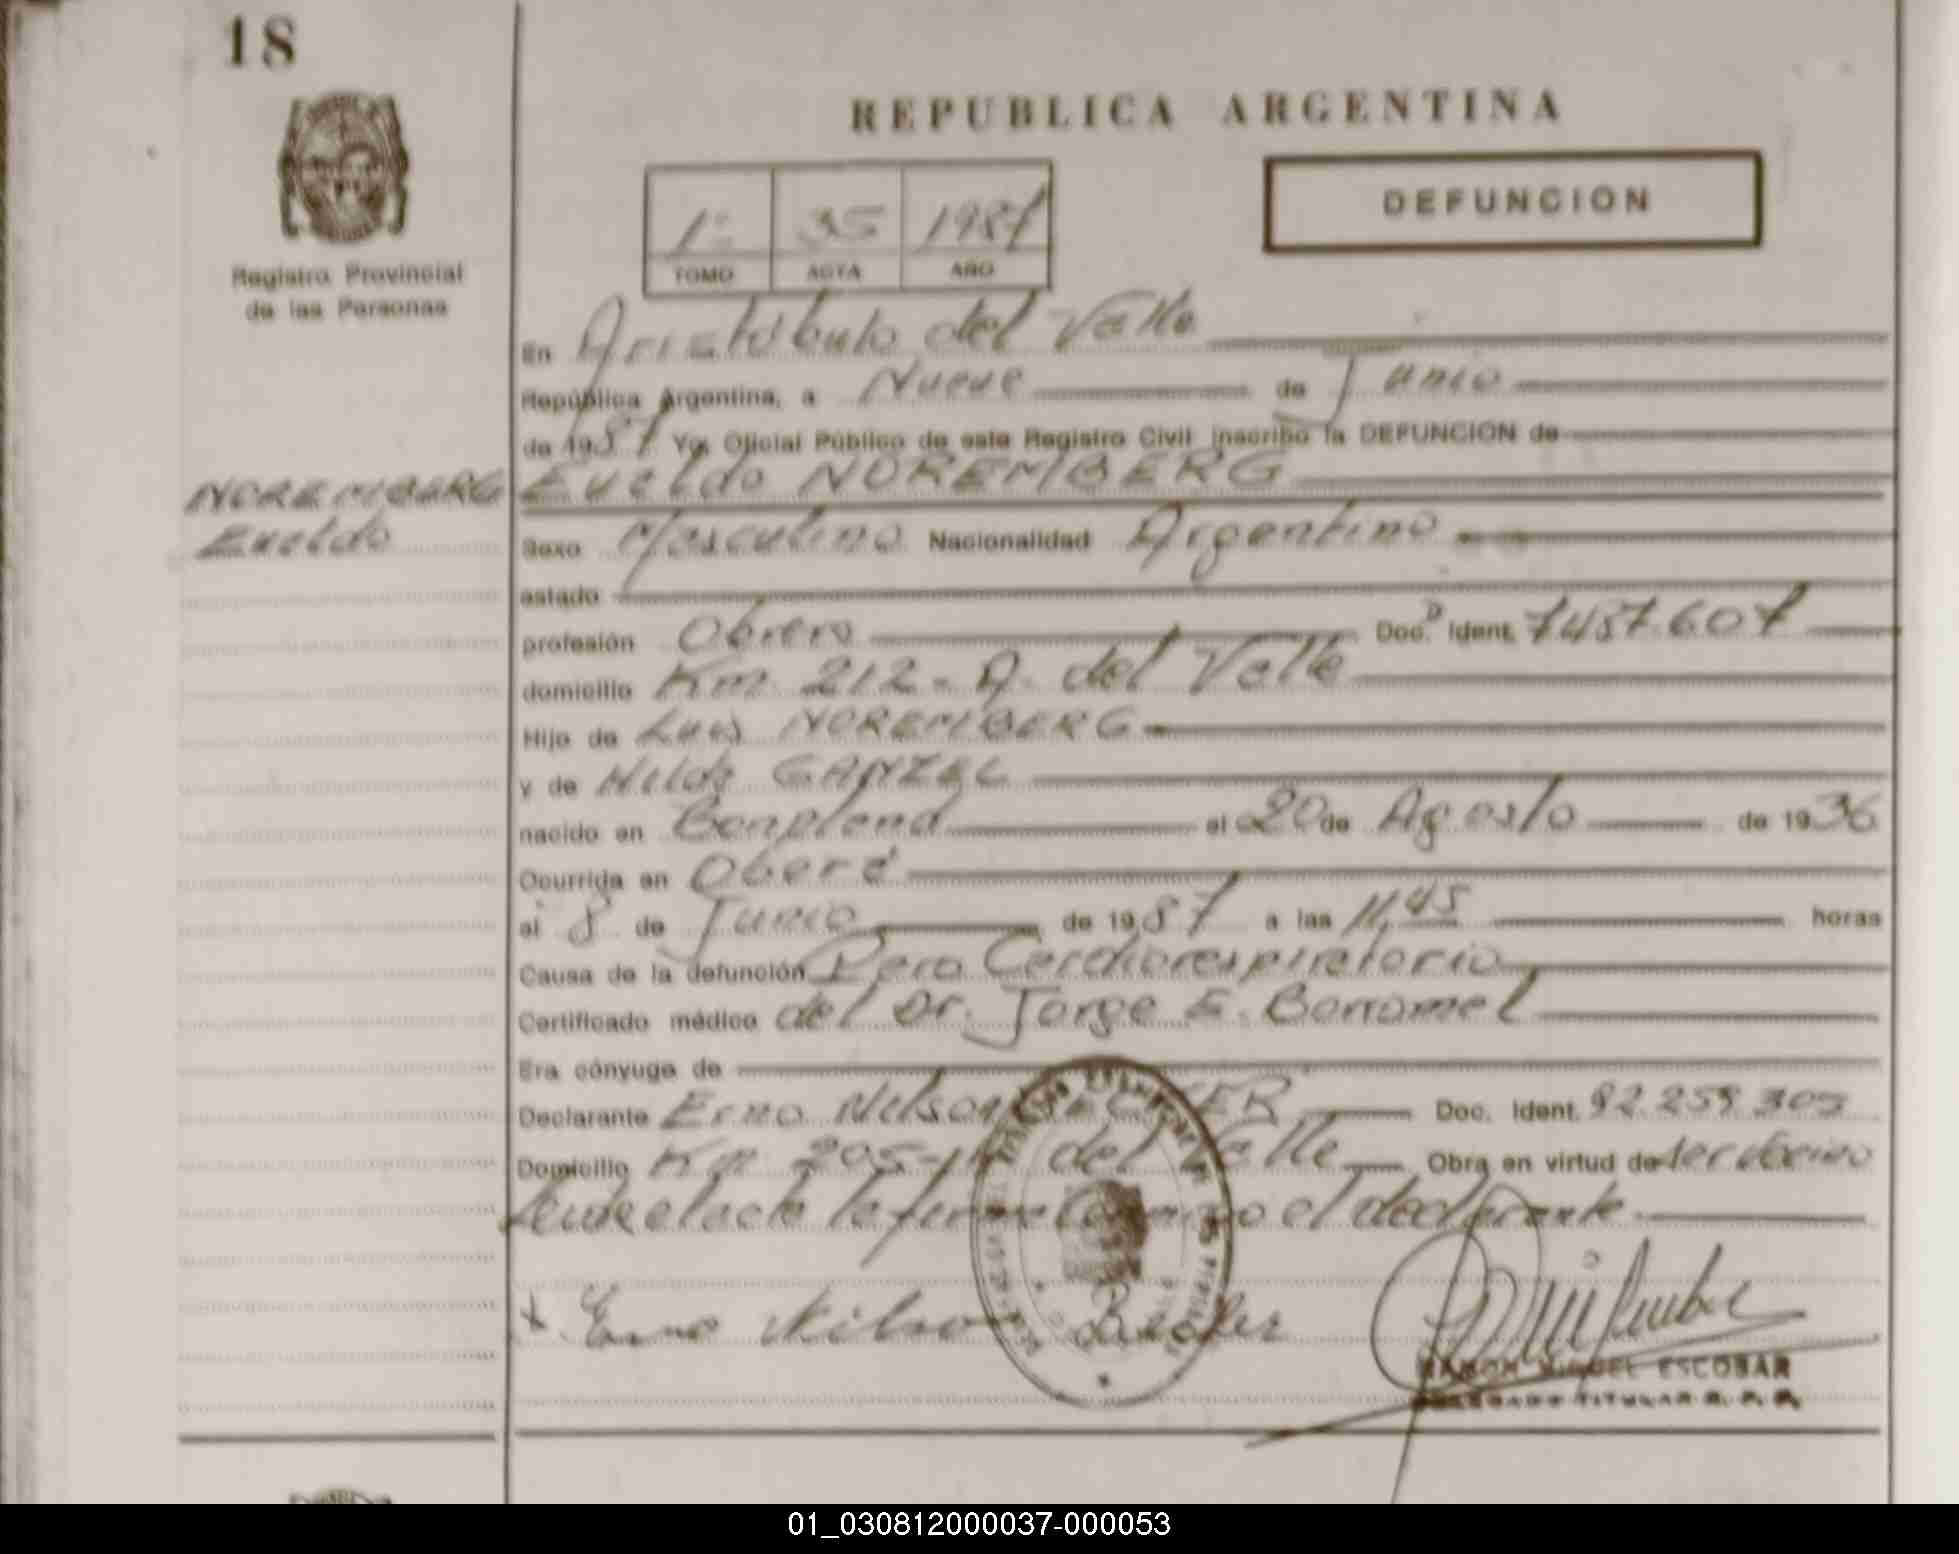 18
REPUBLICA ARGENTINA
DEFUNCION
1º 35 1987
TOMO ACTA AÑO
Registro Provincial
de las Personas
En Aristóbulo del Valle
República Argentina, a Nueve de Junio
de 1987 Yo, Oficial Público de este Registro Civil inscribo la DEFUNCION de
NOREMBERG
Eveldo
Eveldo NOREMBERG
Sexo Masculino Nacionalidad Argentino
estado
profesión Obrero Doc. Ident. 7487.607
domicilio Km 212 - A. del Valle
Hijo de Luis NOREMBERG
y de Hilda GANZEL
nacido en Bonpland el 20 de Agosto de 1936
Ocurrida en Oberá
el 8 de Junio de 1987 a las 11,45 horas
Causa de la defunción Paro Cardiorespiratorio
Certificado médico del Dr. Jorge E. Borromel
Era cónyuge de
Declarante Erno Nelson Doc. Ident. 92.259.305
Domicilio Km 205 - del Valle Obra en virtud de ser vecino
Leída el acta la firma conmigo el declarante.
Erno Nilson
RAMON MIGUEL ESCOBAR
DELEGADO TITULAR R. P. P.
01_030812000037-000053